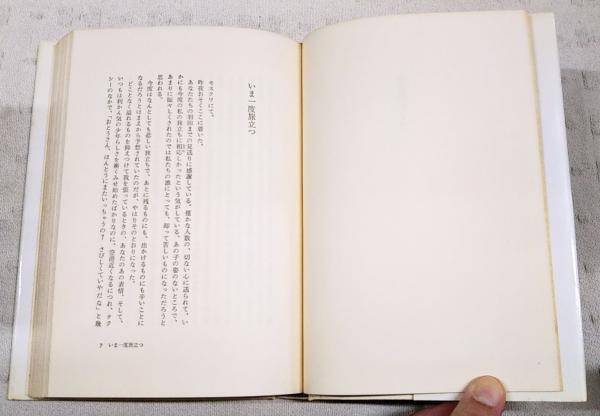 いま一度旅立つ
モスクワにて。
昨夜おそくここに着いた。
あなたたちの羽田までの見送りに感謝している。僅かな人数の、切ない心に送られて、い
かにも今度の私の旅立ちに相応しかったという気がしている。あの子の姿のないところで、
あまりに賑々しくされたのでは私たちの誰にとっても、却って苦しいものになっただろうと
思われる。
今度はなんとしても悲しい旅立ちで、あとに残るものにも、出かけるものにも辛いことに
なるだろうとはまえから予想されていたのだが、やはりそのとおりになった。
どことなく溢れるものを抑えつけて我を張っているときの、あなたのあの表情。そして、
いつもは利かん気の少年らしさを漸くみせ始めたばかりなのに、空港近くなるにつれ、タク
シーのなかで、「おとうさん、ほんとうにまたいっちゃうの？ さびしくていやだな」と幾
7 いま一度旅立つ